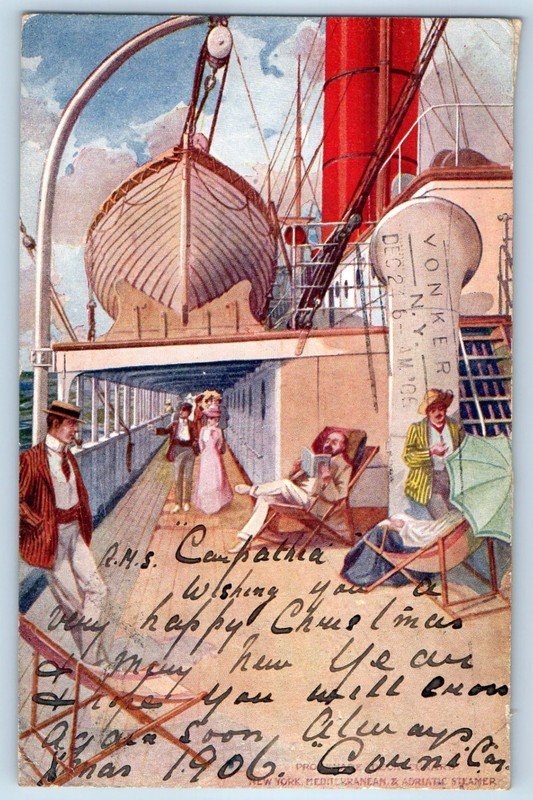 VONKER
N.Y.
DEC 2
M. '06
R.M.S. "Carpathia"
Wishing you a
very happy Christmas
& Many new Year
I hope you will cross
again soon Always
Xmas 1906.
NEW YORK, MEDITERRANEAN, & ADRIATIC STEAMER